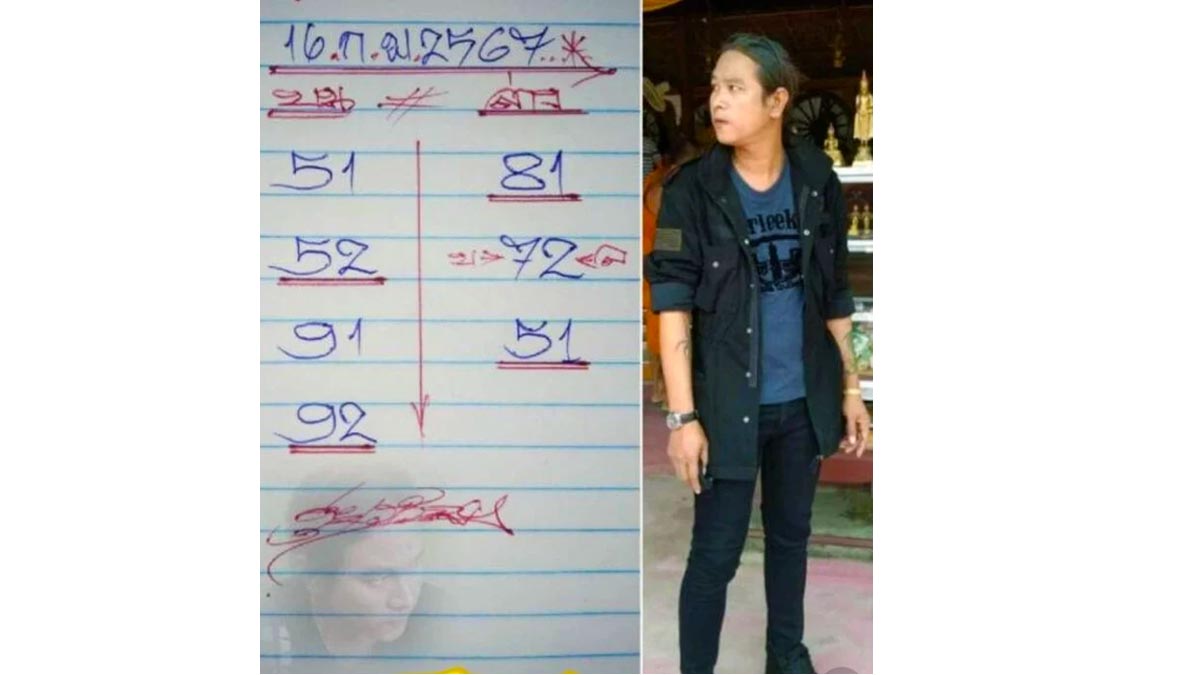 16.ก.พ.2567..*
บน ล่าง
51 81
52 บ→72←ล
91 51
92
rleek